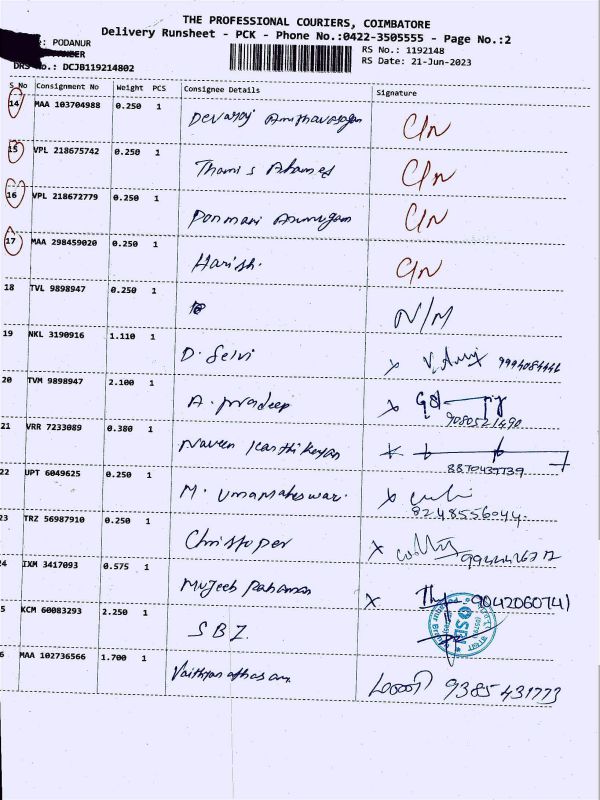 THE PROFESSIONAL COURIERS, COIMBATORE
Delivery Runsheet - PCK - Phone No.:0422-3505555 - Page No.:2
: PODANUR
RS No.: 1192148
DRS No.: DCJB119214802
RS Date: 21-Jun-2023
S No Consignment No Weight PCS Consignee Details Signature
14 MAA 103704988 0.250 1 Devaraj
15 VPL 218675742 0.250 1 Thamis Ahamed
16 VPL 218672779 0.250 1 Ponmari Arumugam
17 MAA 298459020 0.250 1 Harish.
18 TVL 9898947 0.250 1 N/M
19 NKL 3190916 1.110 1 D. Selvi x 9994084446
20 TVM 9898947 2.100 1 A. Pradeep x 9080521490
21 VRR 7233089 0.380 1 Naveen Karthikeyan x
22 UPT 6049625 0.250 1 M. Umamaheswari x 8248556044
23 TRZ 56987910 0.250 1 Christoper x
24 IXM 3417093 0.575 1 Mujeeb Rahaman x 9042060741
5 KCM 60083293 2.250 1 S B I
6 MAA 102736566 1.700 1 9385431773